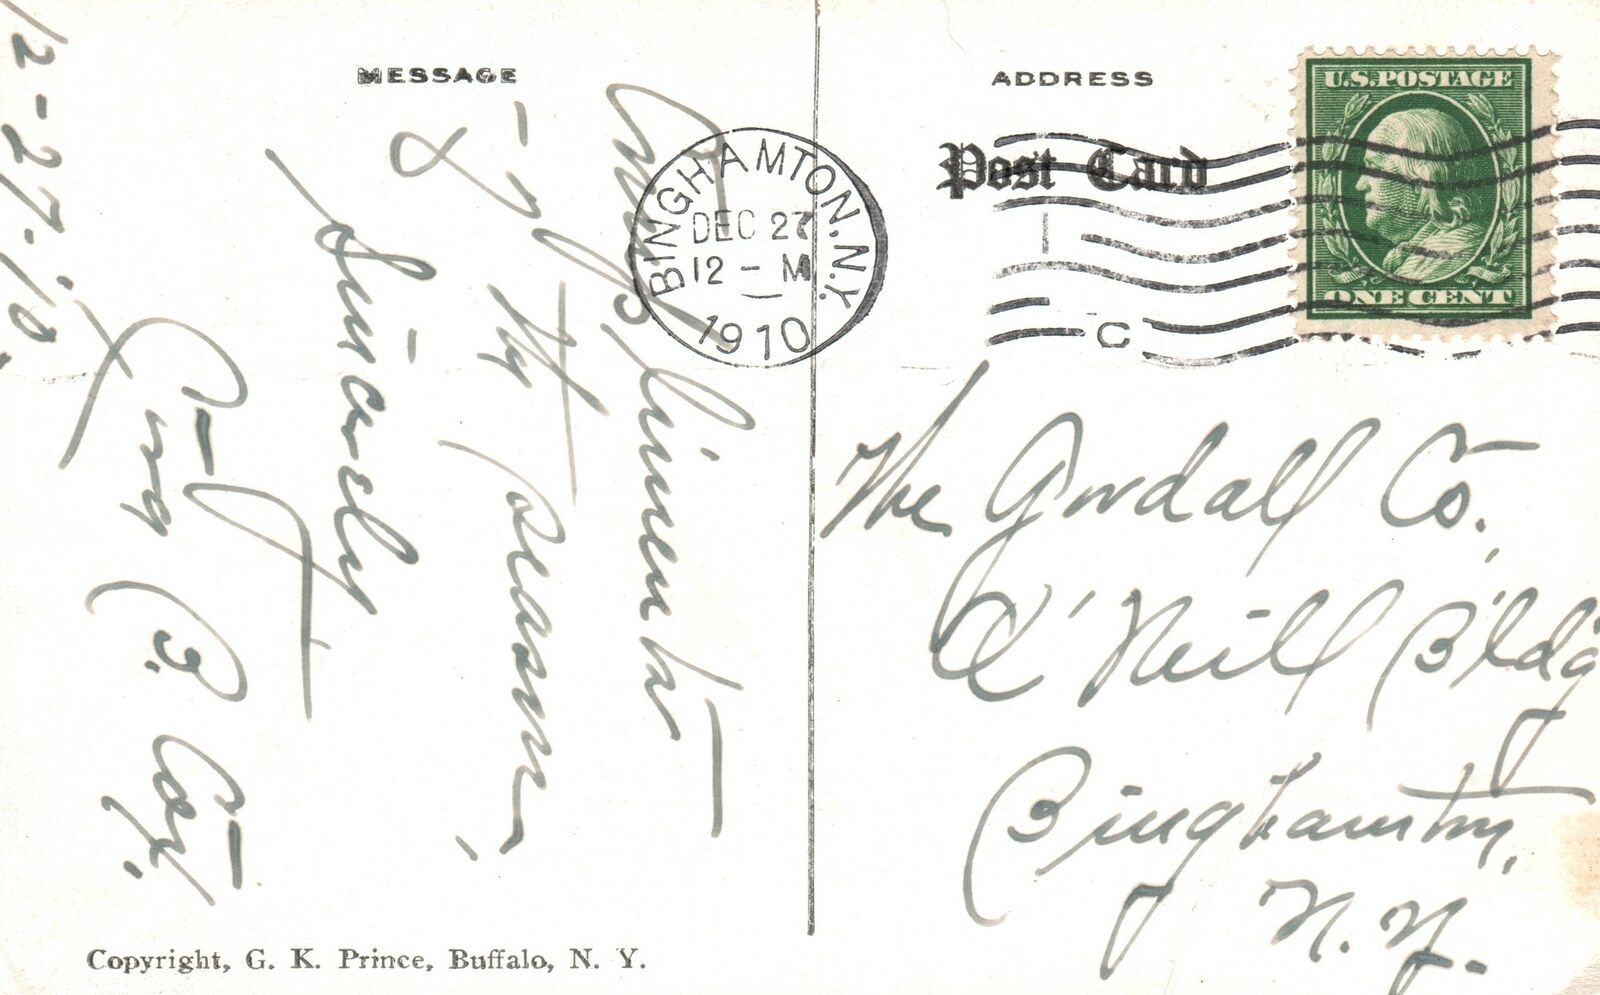 MESSAGE
Compliments
of the season,
Sincerely
12-27-'10.
ADDRESS
Post Card
U.S. POSTAGE
ONE CENT
BINGHAMTON, N.Y.
DEC 27
12 - M
1910
C
The Gordall Co.,
O'Neill B'ldg
Binghamton,
N.Y.
Copyright, G. K. Prince, Buffalo, N. Y.